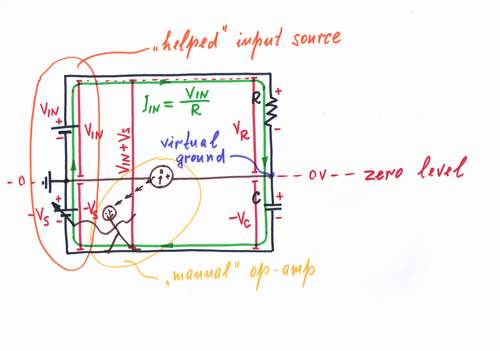 „helped" input source
VIN
+
-
VIN
VIN+VS
IIN = VIN/R
R
+
-
VR
virtual
ground
- 0 -
-VS
+
-
-VS
- i +
-- 0V -- zero level
C
+
-
-VC
„mannal" op-amp